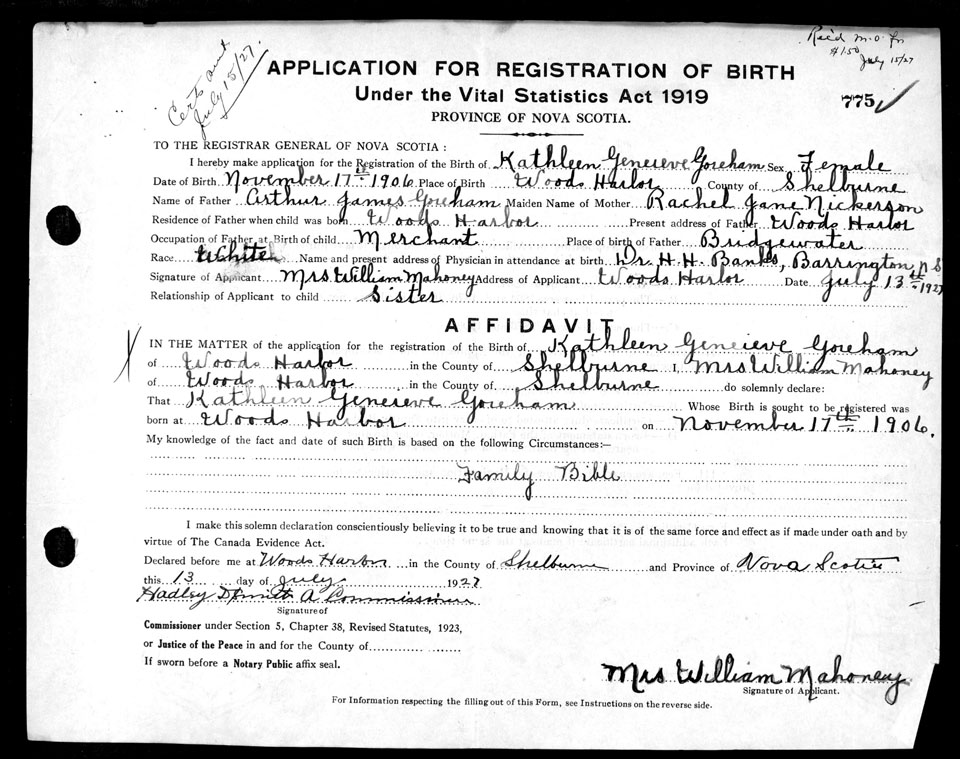 Rec'd m.o. for
$1.50
July 15/27
Certs sent
July 15/27.
APPLICATION FOR REGISTRATION OF BIRTH
Under the Vital Statistics Act 1919
775 ✓
PROVINCE OF NOVA SCOTIA.
TO THE REGISTRAR GENERAL OF NOVA SCOTIA:
I hereby make application for the Registration of the Birth of Kathleen Genevieve Goreham Sex Female
Date of Birth November 17th 1906 Place of Birth Woods Harbor County of Shelburne
Name of Father Arthur James Goreham Maiden Name of Mother Rachel Jane Nickerson
Residence of Father when child was born Woods Harbor Present address of Father Woods Harbor
Occupation of Father at Birth of child Merchant Place of birth of Father Bridgewater
Race White Name and present address of Physician in attendance at birth Dr. H. H. Banks, Barrington, N S
Signature of Applicant Mrs William Mahoney Address of Applicant Woods Harbor Date July 13th 1927
Relationship of Applicant to child Sister
AFFIDAVIT
IN THE MATTER of the application for the registration of the Birth of Kathleen Genevieve Goreham
of Woods Harbor in the County of Shelburne I, Mrs William Mahoney
of Woods Harbor, in the County of Shelburne do solemnly declare:
That Kathleen Genevieve Goreham Whose Birth is sought to be registered was
born at Woods Harbor on November 17th 1906.
My knowledge of the fact and date of such Birth is based on the following Circumstances:—
Family Bible
I make this solemn declaration conscientiously believing it to be true and knowing that it is of the same force and effect as if made under oath and by
virtue of The Canada Evidence Act.
Declared before me at Woods Harbor in the County of Shelburne and Province of Nova Scotia
this 13 day of July 1927
Hadley A Commissioner
Signature of
Commissioner under Section 5, Chapter 38, Revised Statutes, 1923,
or Justice of the Peace in and for the County of
If sworn before a Notary Public affix seal.
Mrs William Mahoney
Signature of Applicant.
For Information respecting the filling out of this Form, see Instructions on the reverse side.